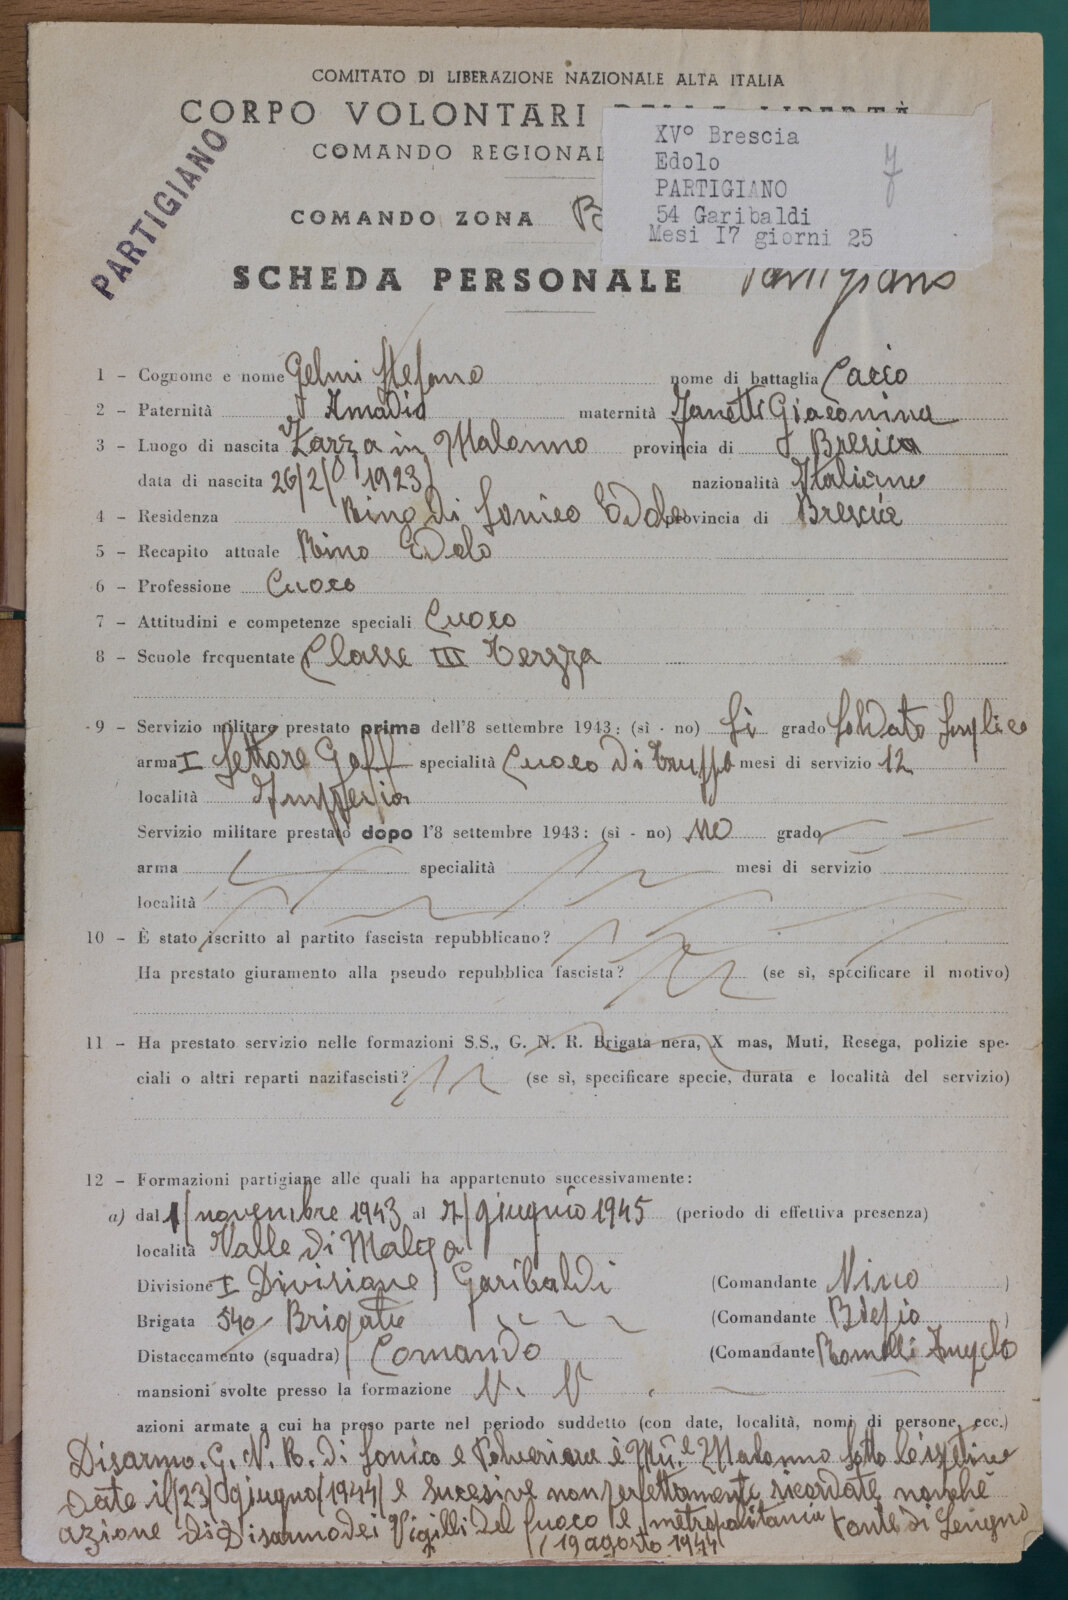 COMITATO DI LIBERAZIONE NAZIONALE ALTA ITALIA
CORPO VOLONTARI DELLA LIBERTÀ
COMANDO REGIONAL
COMANDO ZONA
XVº Brescia
Edolo
PARTIGIANO
54 Garibaldi
Mesi I7 giorni 25
7
PARTIGIANO
SCHEDA PERSONALE Partigiano
1 - Cognome e nome Gelmi Stefano nome di battaglia Caccio
2 - Paternità Amadio maternità Zanetti Giacomina
3 - Luogo di nascita Zazza in Malonno provincia di Bresica
data di nascita 26/2/1923 nazionalità Italiana
4 - Residenza Rino di Sonico Edolo provincia di Brescia
5 - Recapito attuale Rino Edolo
6 - Professione Cuoco
7 - Attitudini e competenze speciali Cuoco
8 - Scuole frequentate Classe III Terzza
9 - Servizio militare prestato prima dell'8 settembre 1943: (sì - no) Sì grado Soldato Semplice
arma I Settore Gaff specialità Cuoco di Truppa mesi di servizio 12
località Impperia
Servizio militare prestato dopo l'8 settembre 1943: (sì - no) NO grado
arma specialità mesi di servizio
località
10 - È stato iscritto al partito fascista repubblicano?
Ha prestato giuramento alla pseudo repubblica fascista? (se sì, specificare il motivo)
11 - Ha prestato servizio nelle formazioni S.S., G. N. R. Brigata nera, X mas, Muti, Resega, polizie spe-
ciali o altri reparti nazifascisti? (se sì, specificare specie, durata e località del servizio)
12 - Formazioni partigiane alle quali ha appartenuto successivamente:
a) dal 1/novembre 1943 al 7/giugnio 1945 (periodo di effettiva presenza)
località Valle di Malga
Divisione I Divisione Garibaldi (Comandante Nino)
Brigata 54º Brigata (Comandante Biesio)
Distaccamento (squadra) Comando (Comandante Romelli Angelo
mansioni svolte presso la formazione V. V
azioni armate a cui ha preso parte nel periodo suddetto (con date, località, nomi di persone, ecc.)
Disarmo. G. N. R. di Sonico e Malonno Sotto
date il/23/giugno/1944/ e sucesive non perfettamente ricordate nonché
azione di Disarmo dei Vigilli del fuoco e metropolitania
19 agosto 1944